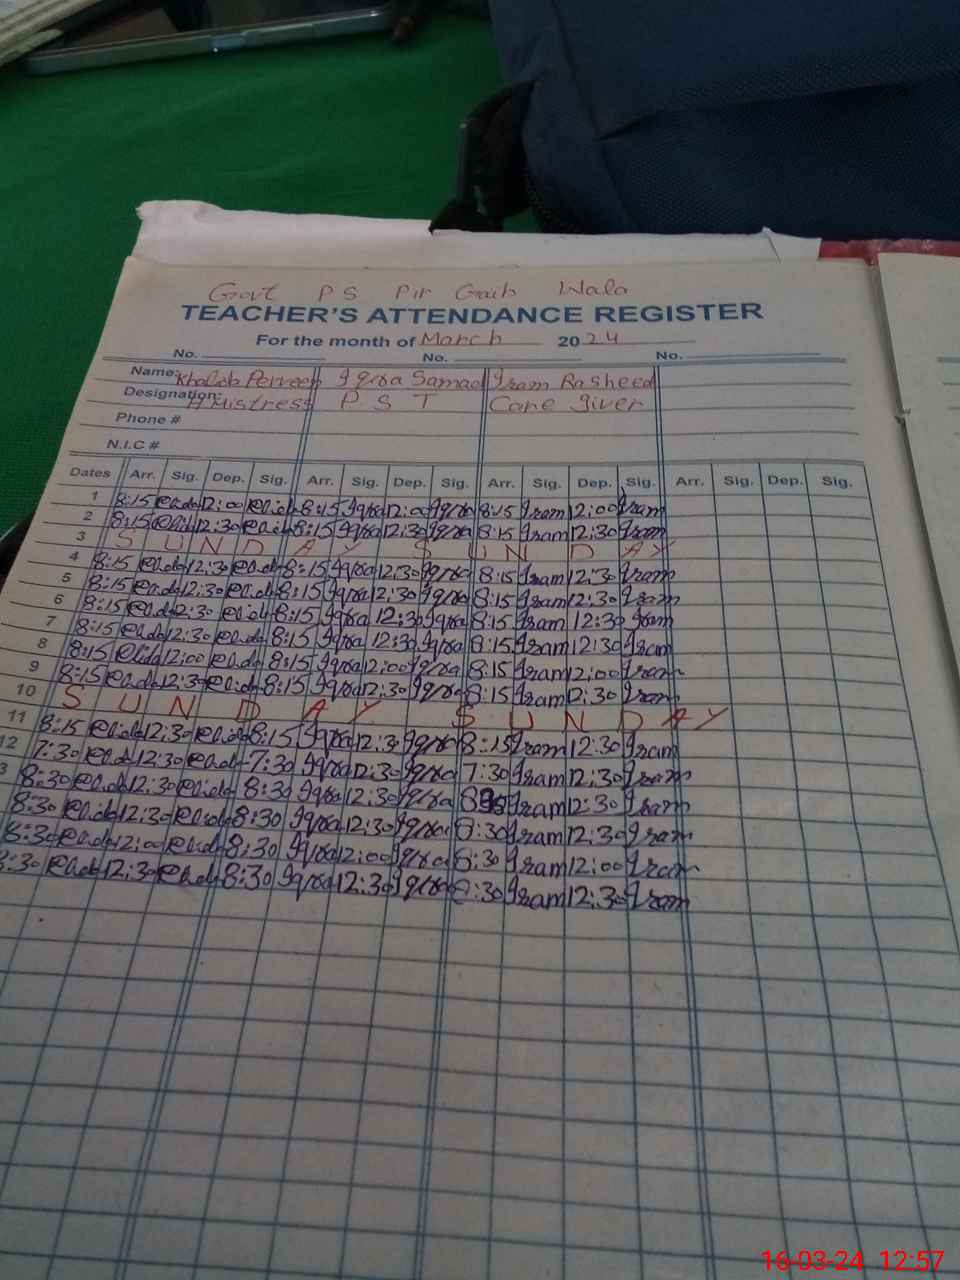 Govt P S Pir Gaib Wala
TEACHER'S ATTENDANCE REGISTER
For the month of March 2024
No. No. No.
Name: Khalida Perveen Iqra Samad Iram Rasheed
Designation: H Mistress P S T Care giver
Phone #
N.I.C #
Dates Arr. Sig. Dep. Sig. Arr. Sig. Dep. Sig. Arr. Sig. Dep. Sig. Arr. Sig. Dep. Sig.
1 8:15 12:00 8:15 Iqra 12:00 Iqra 8:15 Iram 12:00 Iram
2 8:15 12:30 8:15 Iqra 12:30 Iqra 8:15 Iram 12:30 Iram
3 S U N D A Y S U N D A Y
4 8:15 12:30 8:15 Iqra 12:30 Iqra 8:15 Iram 12:30 Iram
5 8:15 12:30 8:15 Iqra 12:30 Iqra 8:15 Iram 12:30 Iram
6 8:15 12:30 8:15 Iqra 12:30 Iqra 8:15 Iram 12:30 Iram
7 8:15 12:30 8:15 Iqra 12:30 Iqra 8:15 Iram 12:30 Iram
8 8:15 12:00 8:15 Iqra 12:00 Iqra 8:15 Iram 12:00 Iram
9 8:15 12:30 8:15 Iqra 12:30 Iqra 8:15 Iram 12:30 Iram
10 S U N D A Y S U N D A Y
11 8:15 12:30 8:15 Iqra 12:30 Iqra 8:15 Iram 12:30 Iram
12 7:30 12:30 7:30 Iqra 12:30 Iqra 7:30 Iram 12:30 Iram
3 8:30 12:30 8:30 Iqra 12:30 Iqra Iram 12:30 Iram
8:30 12:30 8:30 Iqra 12:30 Iqra 8:30 Iram 12:30 Iram
8:30 12:00 8:30 Iqra 12:00 Iqra 8:30 Iram 12:00 Iram
8:30 12:30 8:30 Iqra 12:30 Iqra 8:30 Iram 12:30 Iram
16-03-24 12:57